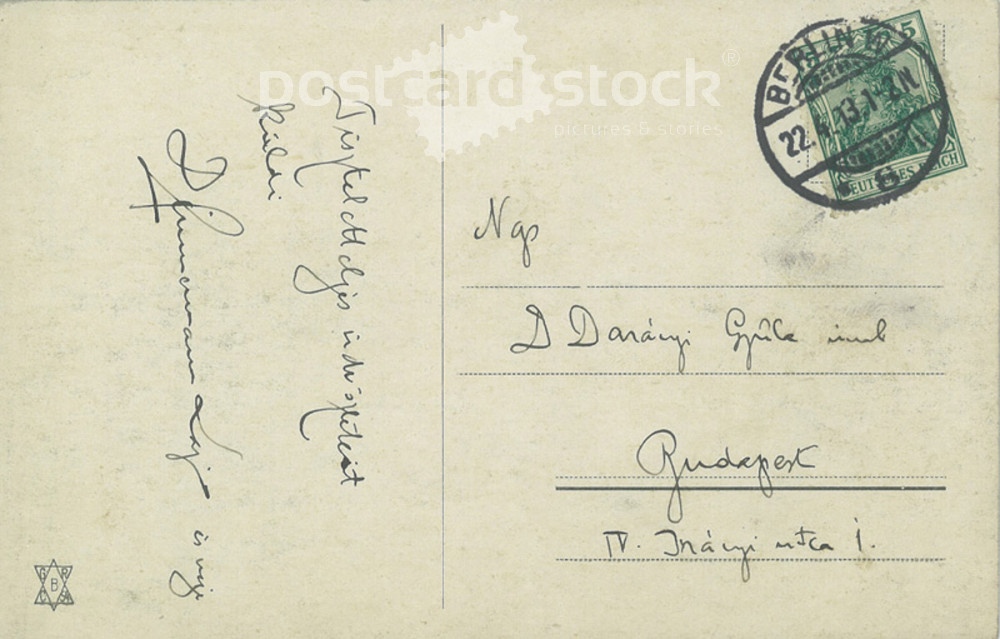 postcard stock®
pictures & stories
Tiszteletteljes üdvözletét
küldi
és neje
BERLIN
22.4.13.1-2N.
5
DEUTSCHES REICH
Ngs
D Darányi Gyula úrnak
Budapest
IV. Irányi utca 1.
B